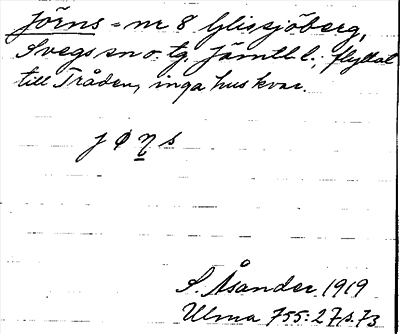 Jörns = nr 8 Glissjöberg,
Svegs sn o. tg. Jämtl. l.; flyttat
till Tråden, inga hus kvar.
j ø n s
S. Åsander 1919
Ulma 755:27, s. 73